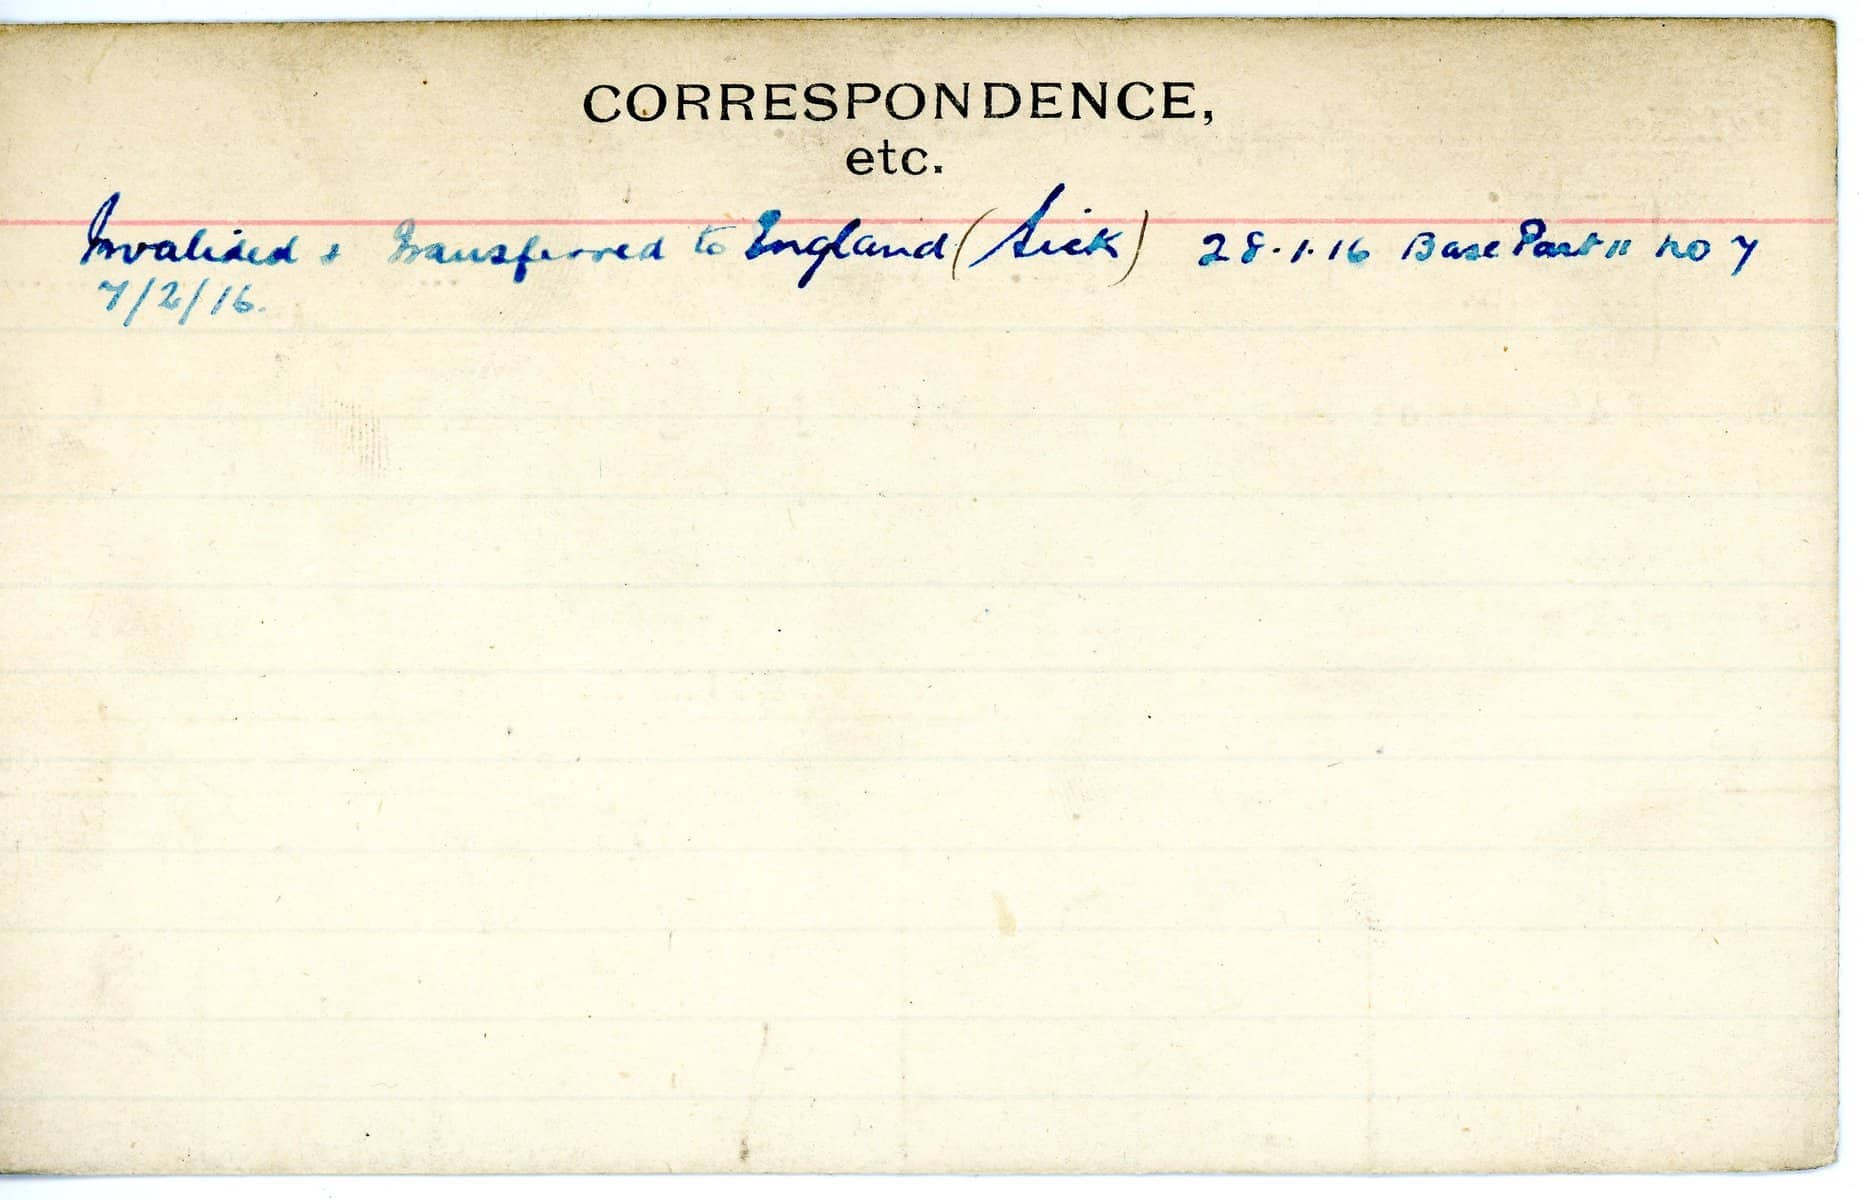 CORRESPONDENCE,
etc.
Invalided & Transferred to England (Sick) 28.1.16 Base Part II no 7
7/2/16.